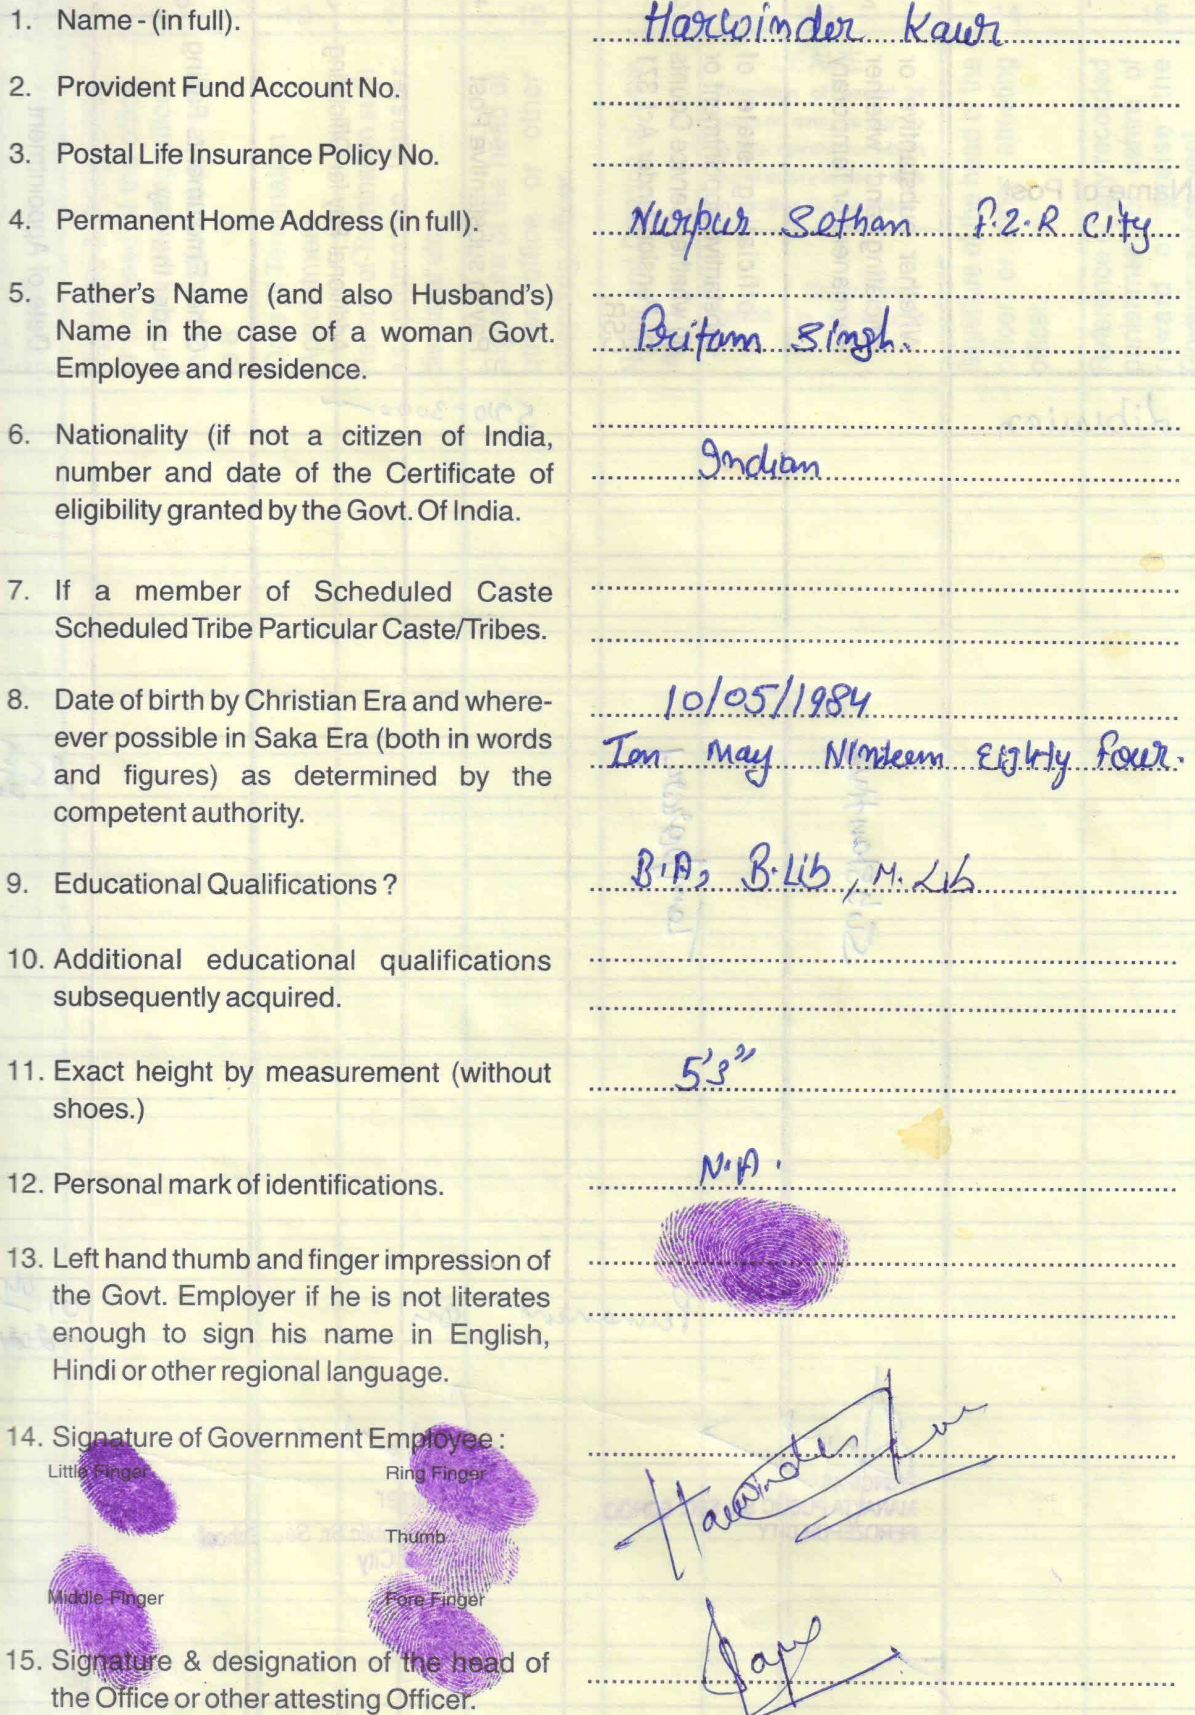 1. Name - (in full). Harwinder Kaur
2. Provident Fund Account No.
3. Postal Life Insurance Policy No.
4. Permanent Home Address (in full). Nurpur Sethan F.Z.R City
5. Father's Name (and also Husband's)
Name in the case of a woman Govt. Pritam Singh.
Employee and residence.
6. Nationality (if not a citizen of India,
number and date of the Certificate of Indian
eligibility granted by the Govt. Of India.
7. If a member of Scheduled Caste
Scheduled Tribe Particular Caste/Tribes.
8. Date of birth by Christian Era and where- 10/05/1984
ever possible in Saka Era (both in words Ten May Ninteen Eighty Four.
and figures) as determined by the
competent authority.
9. Educational Qualifications ? B.A, B.Lib, M. Lib
10. Additional educational qualifications
subsequently acquired.
11. Exact height by measurement (without 5'3"
shoes.)
12. Personal mark of identifications. N.A.
13. Left hand thumb and finger impression of
the Govt. Employer if he is not literates
enough to sign his name in English,
Hindi or other regional language.
14. Signature of Government Employee : Harwinder Kaur
Little Finger Ring Finger
Thumb
Middle Finger Fore Finger
15. Signature & designation of the head of
the Office or other attesting Officer.